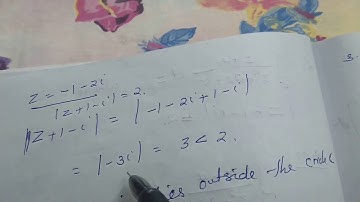 z = -1-2i
|z+1-i| = 2.
|z+1-i| = |-1-2i+1-i|
= |-3i| = 3 < 2.
outside the circle
3.